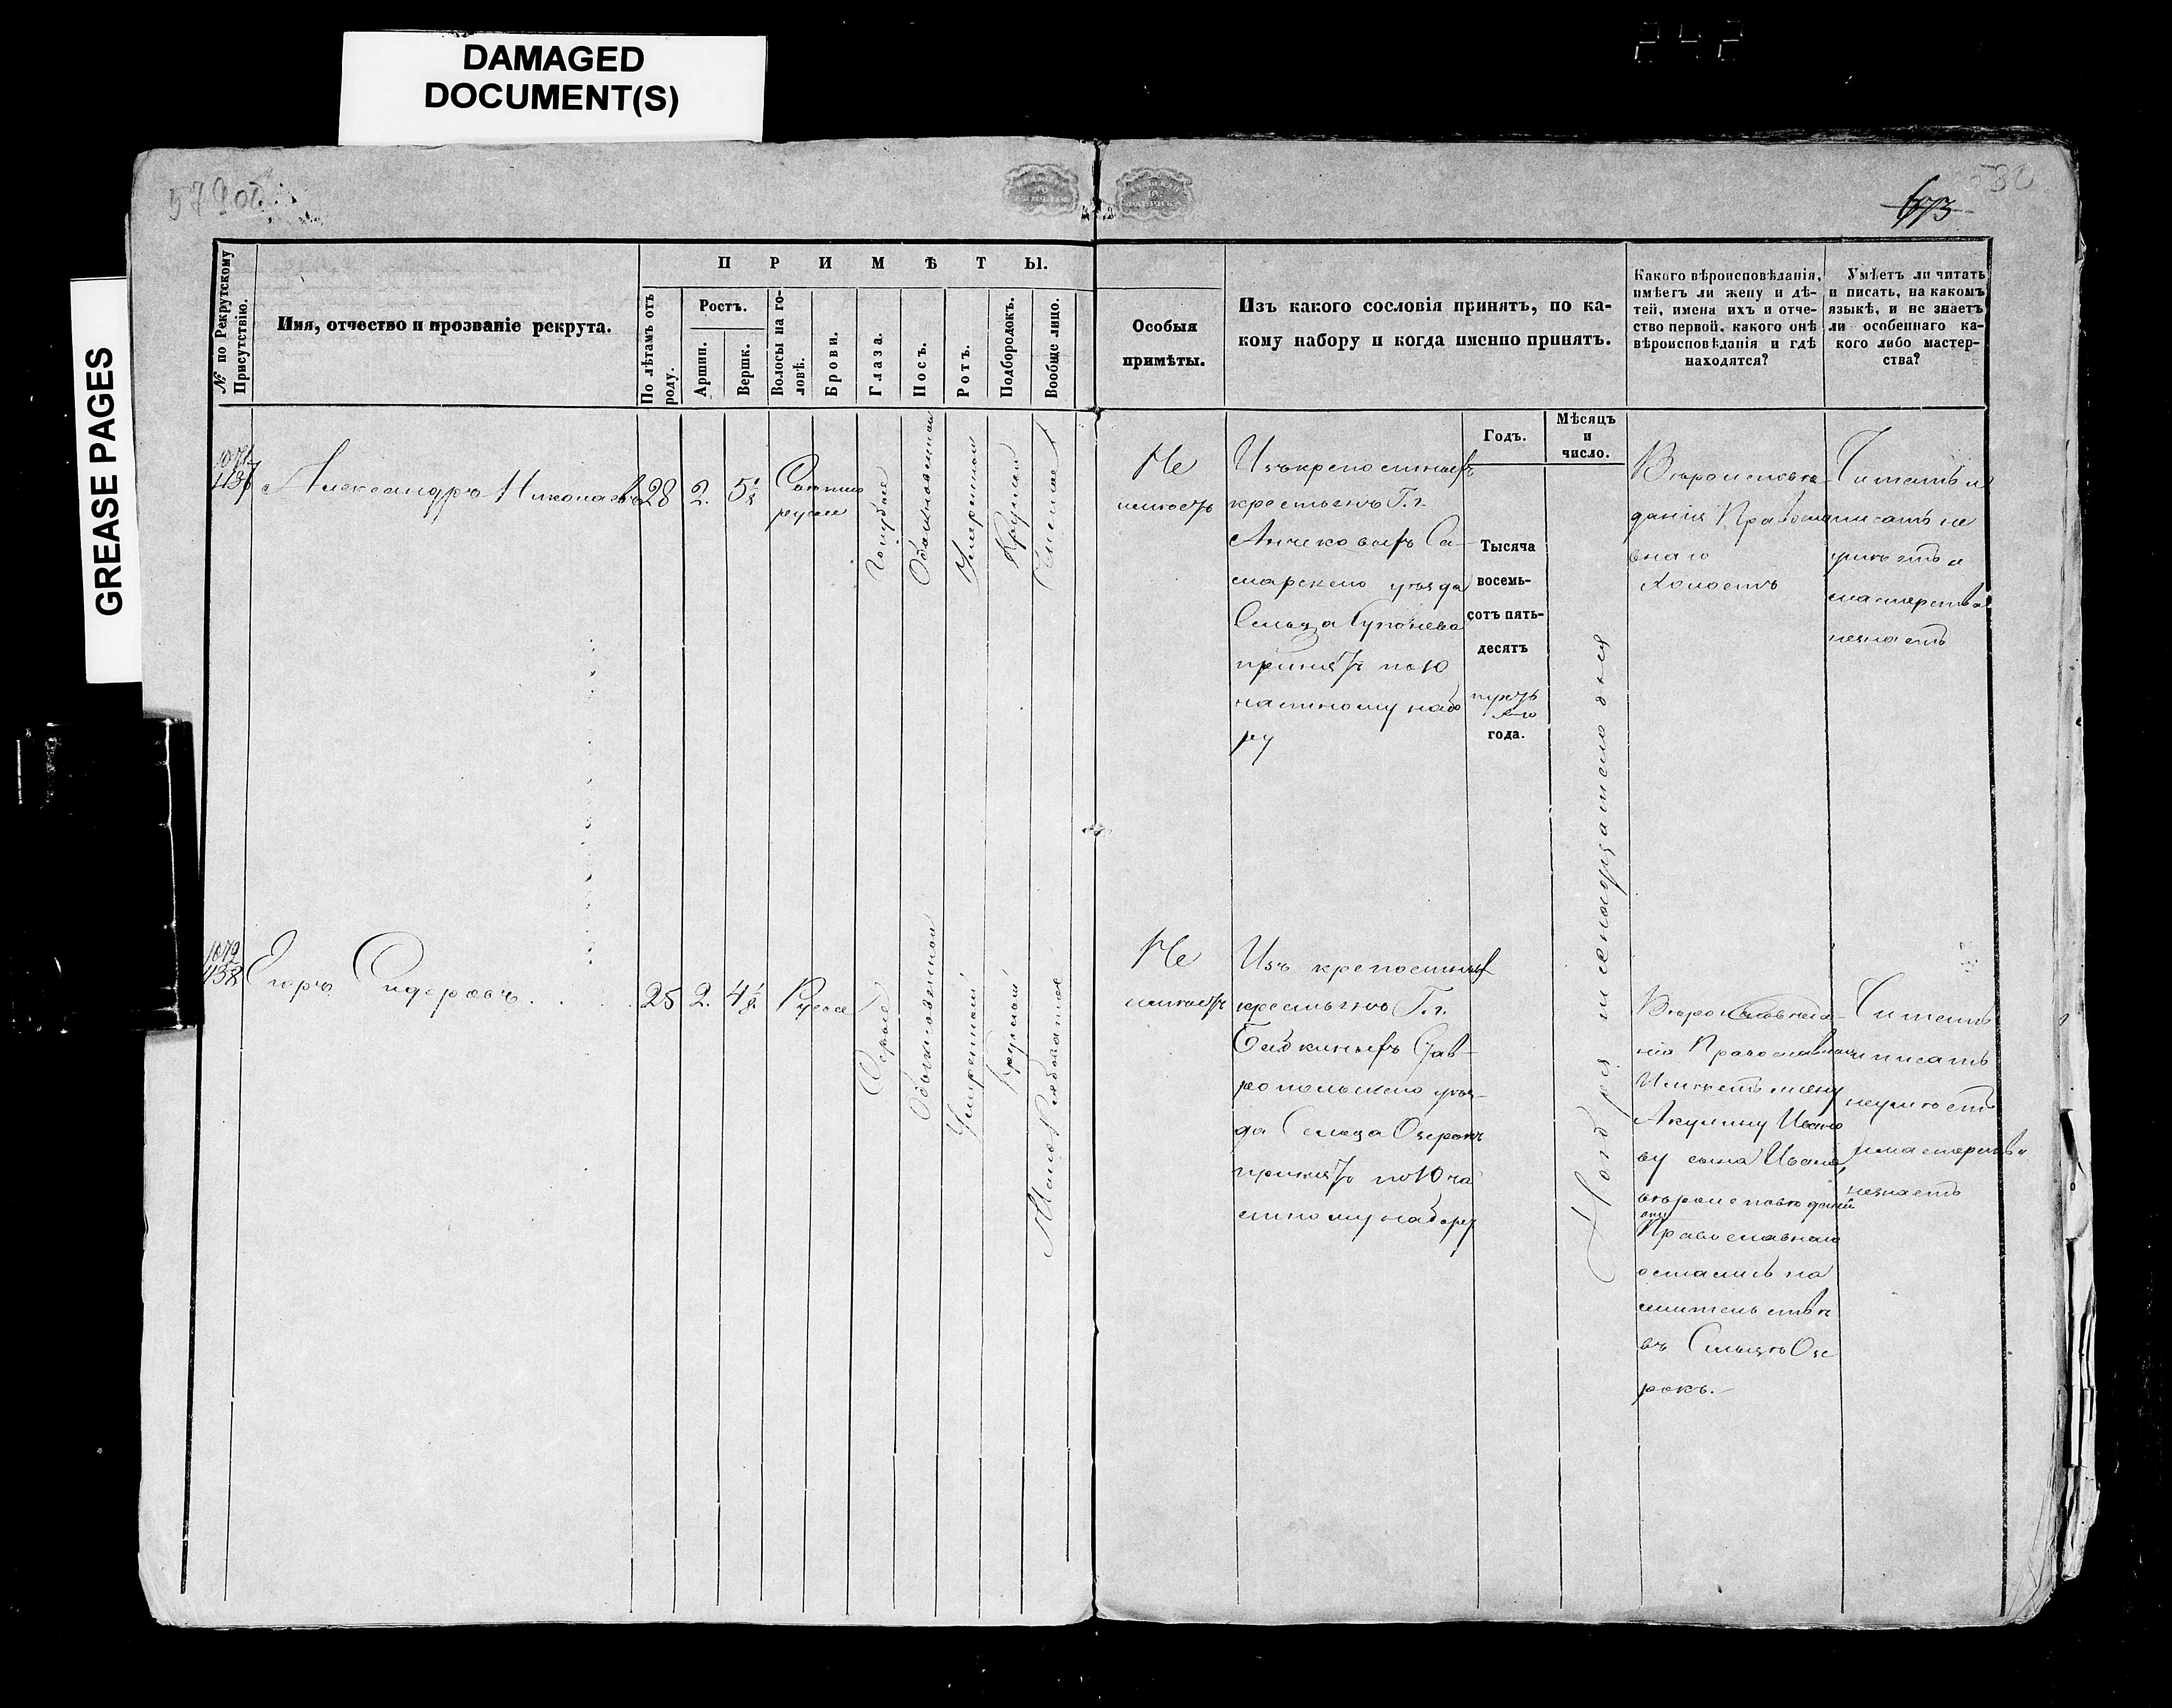 DAMAGED
DOCUMENT(S)
GREASE PAGES
242
579об
673
580
№ по Рекрутскому
Присутствію.
Имя, отчество и прозваніе рекрута.
ПРИМѢТЫ.
По лѣтамъ отъ
роду.
Ростъ.
Аршин.
Вершк.
Волосы на го-
ловѣ.
Брови.
Глаза.
Носъ.
Ротъ.
Подбородокъ.
Вообще лицо.
Особыя
примѣты.
Изъ какого сословія принятъ, по ка-
кому набору и когда именно принятъ.
Какого вѣроисповѣданія,
имѣетъ ли жену и дѣ-
тей, имена ихъ и отче-
ство первой, какого онѣ
вѣроисповѣданія и гдѣ
находятся?
Умѣетъ ли читать
и писать, на какомъ
языкѣ, и не знаетъ
ли особеннаго ка-
кого либо мастер-
ства?
Годъ.
Мѣсяцъ
и
число.
1071
1137
Александръ Николаевъ
28
2.
5⅛
Свѣтло
русые
Голубые
Обыкновенной
Умѣренной
Круглой
Чистое
Не
имѣетъ
Изъ крепостныхъ
крестьянъ Г.г.
Са-
марскаго уѣзда
Сельца
принятъ по 10
частному набо
ру
Тысяча
восемь-
сотъ пять-
десятъ
пятаго
года.
Ноября шестнадцатаго дня
Вѣроисповѣ
данія Правосла
внаго
Холостъ
Читать и
писать не
умѣетъ и
мастерства
незнаетъ
1072
1138
Егоръ Сидоровъ.
25
2.
4½
Русые
Серые
Обыкновенной
Умеренный
Круглый
Мало Рябоватое
Не
имѣетъ
Изъ крепостныхъ
крестьянъ Г.г.
Бабкиныхъ Став-
ропольскаго уѣз-
да Сельца Озерокъ
принятъ по 10 ча
стному набору
Вѣроисповѣда-
нія Православнаго
Имѣетъ жену
Акулину Ивано
ву сына Ивана,
вѣроисповѣданій
они
Православнаго
остались на
жительствѣ
въ Сельцѣ Озе
рокъ.
Читать
и писать
неумѣетъ
и мастерства
незнаетъ